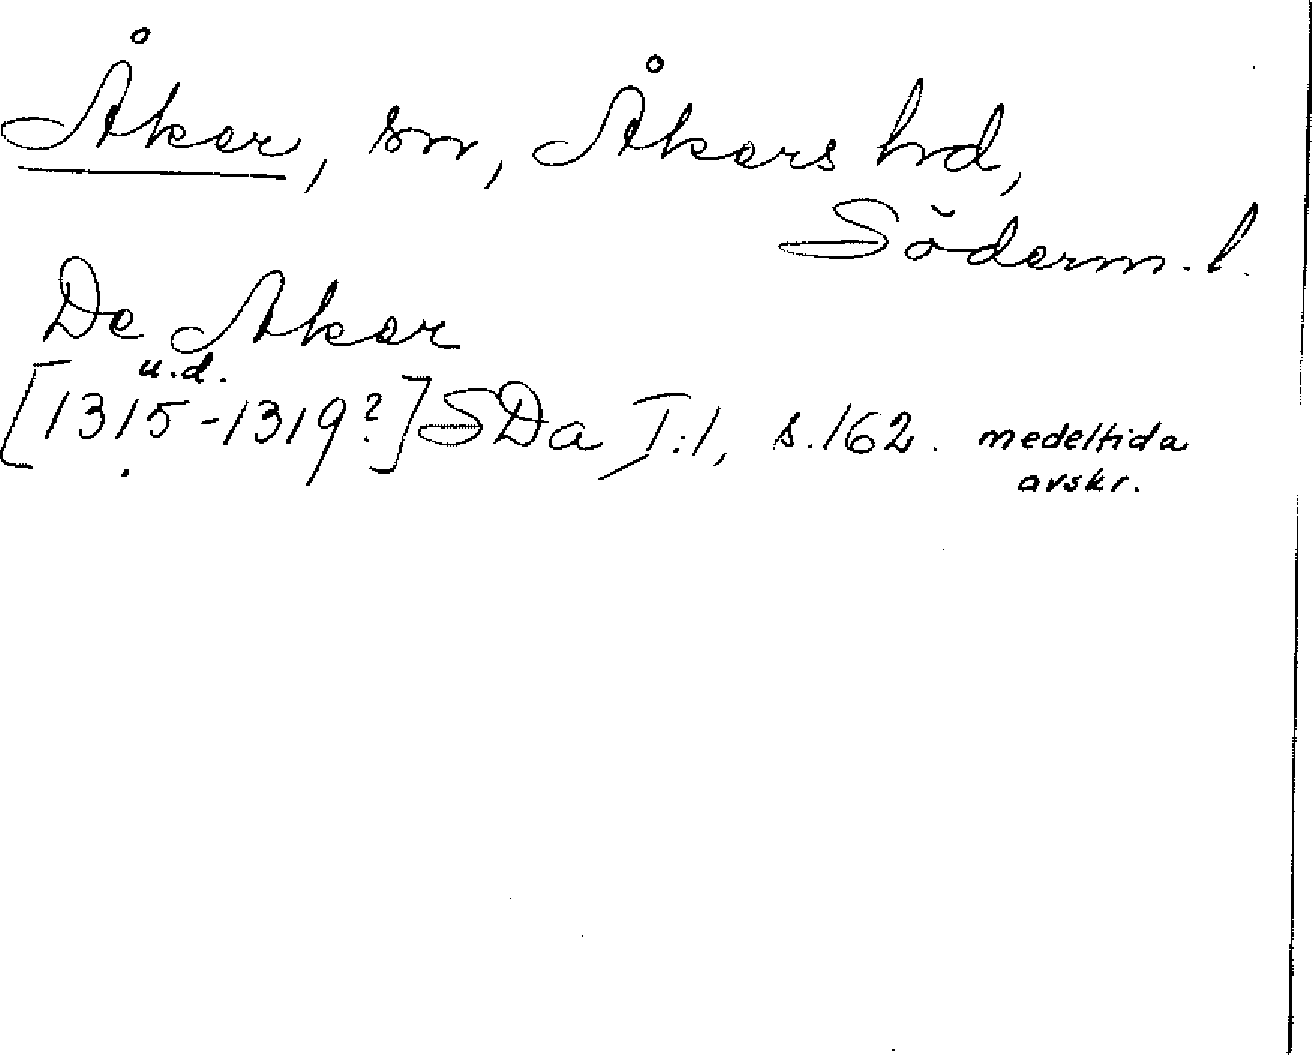 Åker, sn, Åkers hd,
Söderm. l.
De Aker
u.d.
[1315-1319?] SDa I:1, s. 162. medeltida
avskr.